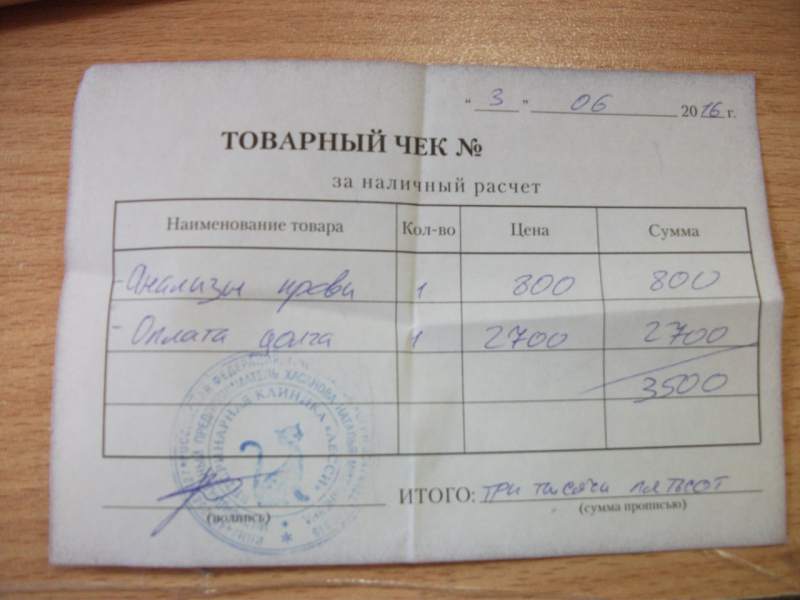 " 3 " 06 2016 г.
ТОВАРНЫЙ ЧЕК №
за наличный расчет
Наименование товара Кол-во Цена Сумма
- Анализы крови 1 800 800
- Оплата долга 1 2700 2700
3500
ВЕТЕРИНАРНАЯ КЛИНИКА
ИТОГО: три тысячи пятьсот
(подпись) (сумма прописью)